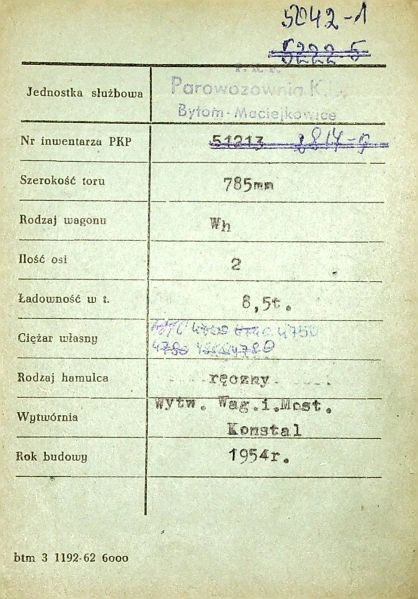 5042-1
5222 5
P.K.P.
Jednostka służbowa Parowozownia K.D.
Bytom-Maciejkowice
Nr inwentarza PKP 51213
Szerokość toru 785mm
Rodzaj wagonu Wh
Ilość osi 2
Ładowność w t. 8,5t.
Ciężar własny 4750
4780 4780
Rodzaj hamulca ręczny
Wytw. Wag.i.Most.
Wytwórnia Konstal
Rok budowy 1954r.
btm 3 1192-62 6000